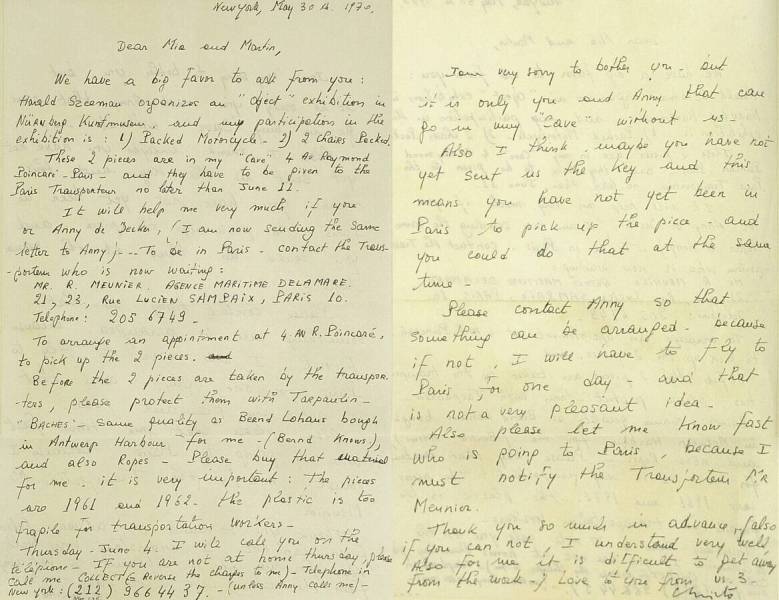 New York, May 30th. 1970.
Dear Mia and Martin,
We have a big favor to ask from you:
Harald Szeeman organizes an "Object" exhibition in
Nürnburg Kunstmuseum, and my participation in the
exhibition is: 1) Packed Motorcycle - 2) 2 Chaires Packed.
These 2 pieces are in my "Cave" 4 Av Raymond
Poincaré - Paris - and they have to be given to the
Paris Transporteur no later than June 11.
It will help me very much if you
or Anny de Decker, (I am now sending the same
letter to Anny) --- To be in Paris - contact the Trans-
-porteur who is now waiting:
MR. R. MEUNIER. AGENCE MARITIME DELAMARE.
21, 23, Rue LUCIEN SAMPAIX, PARIS 10.
Telephone: 205 6749 -
To arrange an appointment at 4 AV R. Poincaré,
to pick up the 2 pieces.
Before the 2 pieces are taken by the transpor-
-ters, please protect them with Tarpaulin -
"BACHES" - same quality as Bernd Lohaus bough
in Antwerp Harbour for me - (Bernd Knows),
and also Ropes - Please buy that material
for me. it is very important: The pieces
are 1961 and 1962 - the plastic is too
fragile for transportation workers -
Thursday - June 4. I will call you on the
téléphone - IF you are not at home thursday, please
call me COLLECT (Reverse the charges to me) - Telephone in
New York: (212) 966 44 37. - (unless Anny calls me) -
I am very sorry to bother you - but
it is only you and Anny that can
go in my "Cave" without us -
Also I think, maybe you have not
yet sent us the Key and this
means you have not yet been in
Paris to pick up the piece - and
you could do that at the same
time -
Please contact Anny so that
something can be arranged - because
if not, I will have to fly to
Paris for one day - and that
is not a very pleasant idea -
Also please let me know fast
who is going to Paris, because I
must notify the Transporteur Mr
Meunier.
Thank you so much in advance, (also
if you can not, I understand very well,
Also for me it is difficult to get away
from the work -) Love to you from us 3 -
Christo